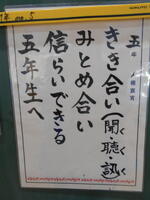 五年 人権宣言
きき合い(聞く・聴く・訊く)
みとめ合い
信らいできる
五年生へ